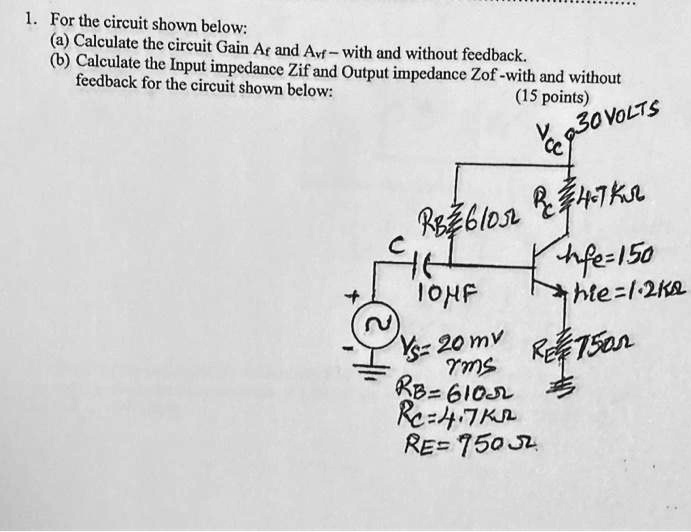 1. For the circuit shown below:
(a) Calculate the circuit Gain Af and Avf – with and without feedback.
(b) Calculate the Input impedance Zif and Output impedance Zof -with and without
feedback for the circuit shown below:
(15 points)
Vcc 30 VOLTS
RB 610Ω RC 4.7KΩ
C
10μF
hfe=150
hie=1.2KΩ
+
-
Vs= 20 mV
rms
RE 750Ω
RB= 610Ω
RC=4.7KΩ
RE= 750Ω